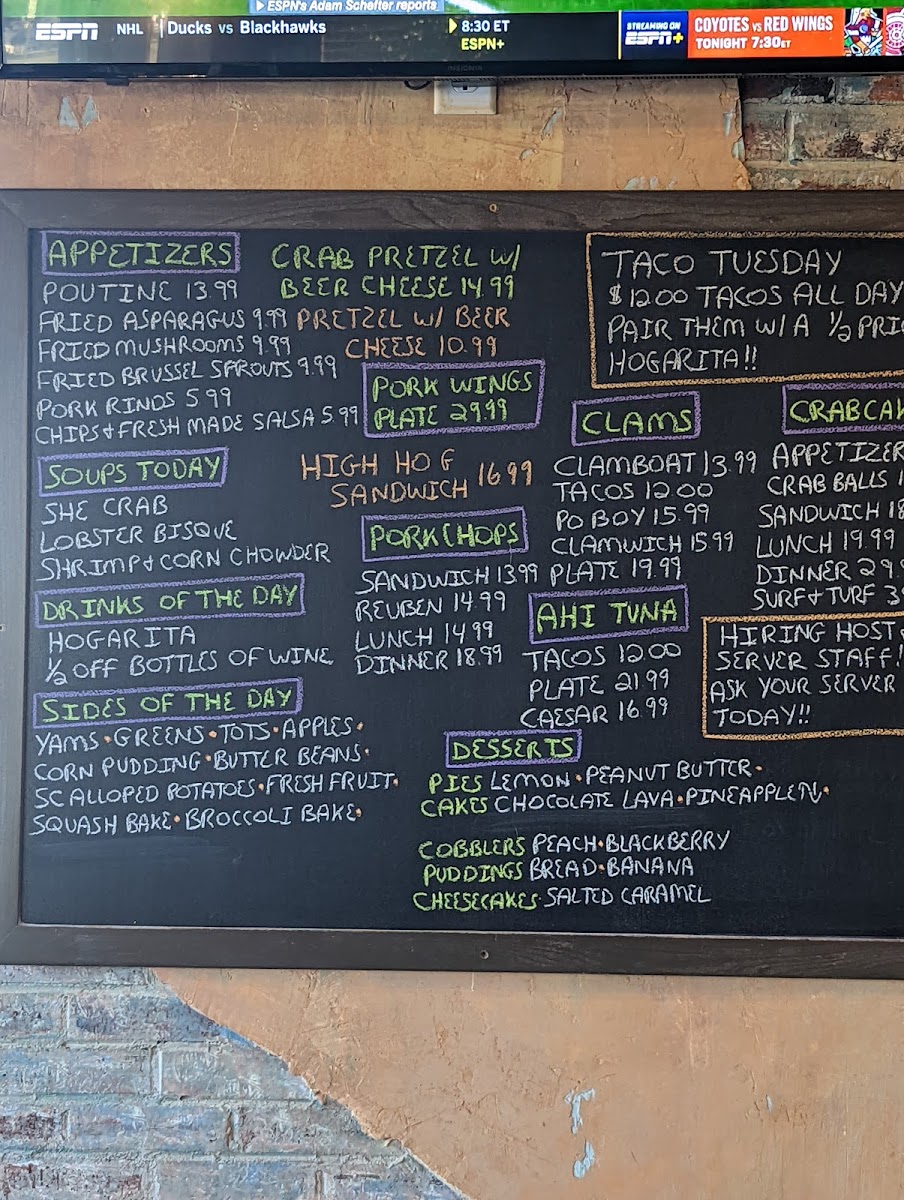 ESPN's Adam Schefter reports
ESPN NHL Ducks vs Blackhawks 8:30 ET
ESPN+
STREAMING ON
ESPN+
COYOTES VS RED WINGS
TONIGHT 7:30ET
INSIGNIA
APPETIZERS
POUTINE 13.99
FRIED ASPARAGUS 9.99
FRIED MUSHROOMS 9.99
FRIED BRUSSEL SPROUTS 9.99
PORK RINDS 5.99
CHIPS + FRESH MADE SALSA 5.99
SOUPS TODAY
SHE CRAB
LOBSTER BISQUE
SHRIMP + CORN CHOWDER
DRINKS OF THE DAY
HOGARITA
1/2 OFF BOTTLES OF WINE
SIDES OF THE DAY
YAMS • GREENS • TOTS • APPLES •
CORN PUDDING • BUTTER BEANS •
SCALLOPED POTATOES • FRESH FRUIT •
SQUASH BAKE • BROCCOLI BAKE •
CRAB PRETZEL W/
BEER CHEESE 14.99
PRETZEL W/ BEER
CHEESE 10.99
PORK WINGS
PLATE 29.99
HIGH HOG
SANDWICH 16.99
PORK CHOPS
SANDWICH 13.99
REUBEN 14.99
LUNCH 14.99
DINNER 18.99
TACO TUESDAY
$12.00 TACOS ALL DAY
PAIR THEM W/ A 1/2
HOGARITA!!
CLAMS
CLAMBOAT 13.99
TACOS 12.00
PO BOY 15.99
CLAMWICH 15.99
PLATE 19.99
AHI TUNA
TACOS 12.00
PLATE 21.99
CAESAR 16.99
APPETIZER
CRAB BALLS
SANDWICH
LUNCH 19.99
DINNER
SURF + TURF
HIRING HOST &
SERVER STAFF!
ASK YOUR SERVER
TODAY!!
DESSERTS
PIES LEMON • PEANUT BUTTER •
CAKES CHOCOLATE LAVA •
COBBLERS PEACH • BLACKBERRY
PUDDINGS BREAD • BANANA
CHEESECAKES • SALTED CARAMEL